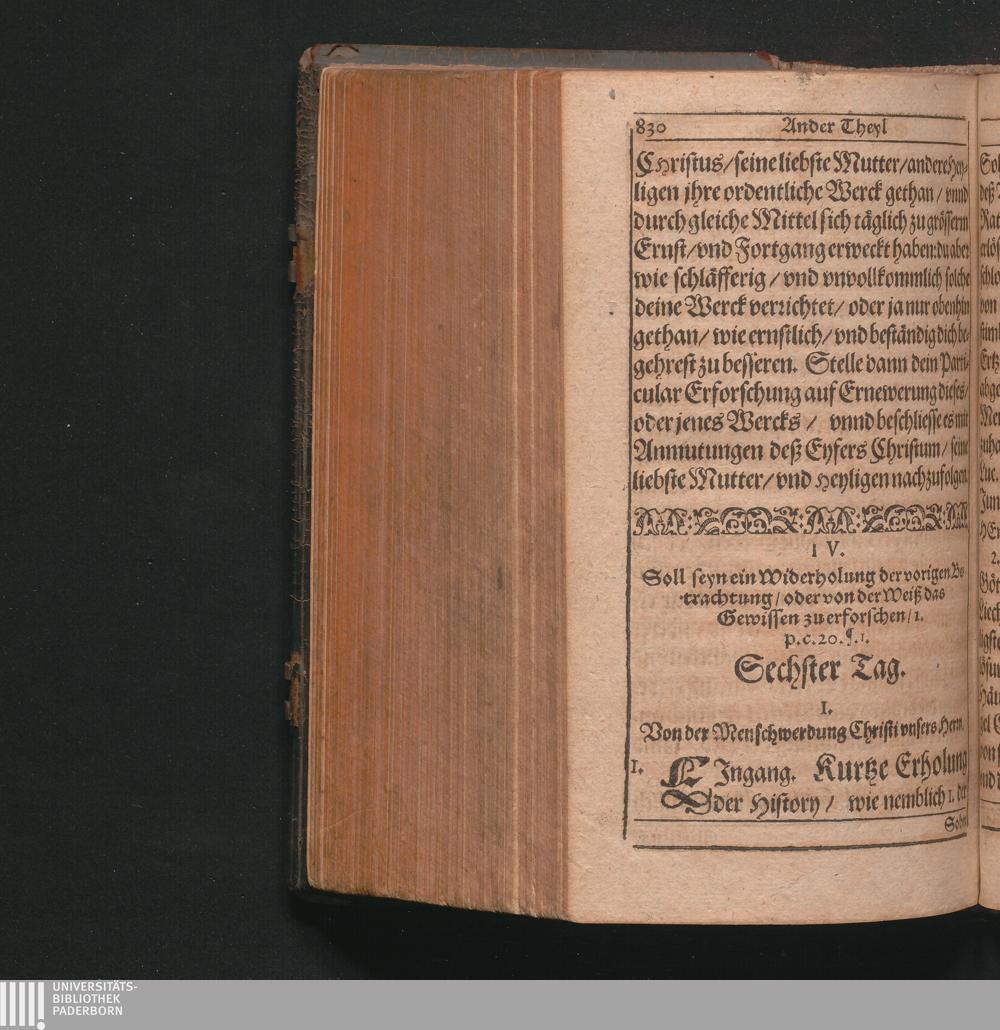 830 Ander Theyl
CHristus/ seine liebste Mutter/ andere Hey-
ligen jhre ordentliche Werck gethan/ vnnd
durch gleiche Mittel sich täglich zu grösserm
Ernst/ vnd Fortgang erweckt haben: du aber
wie schläfferig/ vnd vnvollkommlich solche
deine Werck verrichtet/ oder ja nur obenhin
gethan/ wie ernstlich/ vnd beständig dich be-
gehrest zu besseren. Stelle dann dein Parti-
cular Erforschung auf Ernewerung dieses/
oder jenes Wercks/ vnnd beschliesse es mit
Anmutungen deß Eyfers Christum/ seine
liebste Mutter/ vnd Heyligen nachzufolgen.
IV.
Soll seyn ein Widerholung der vorigen Be-
trachtung/ oder von der Weiß das
Gewissen zu erforschen/ 1.
p. c. 20. ¶. 1.
Sechster Tag.
I.
Von der Menschwerdung Christi vnsers Herrn.
1. EIngang. Kurtze Erholung
der History/ wie nemblich 1. der
Sohn
UNIVERSITÄTS-
BIBLIOTHEK
PADERBORN